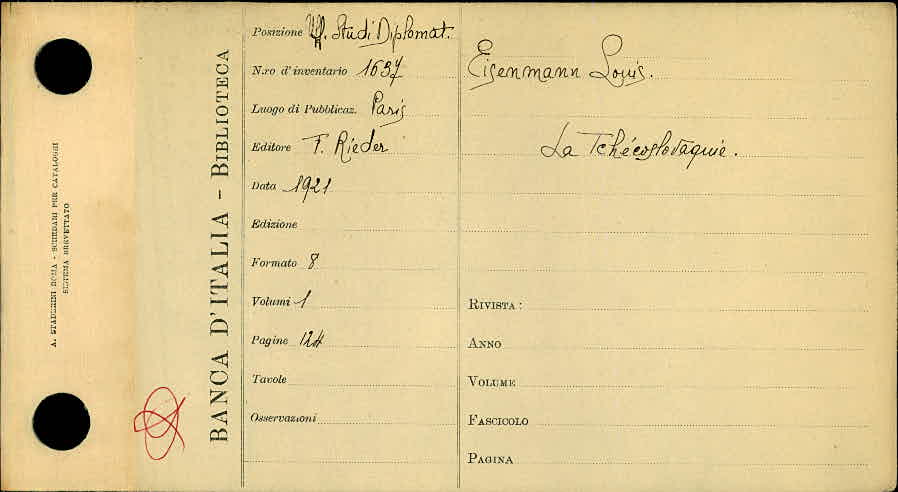 A. STADERINI ROMA - SCHEDARI PER CATALOGHI
SISTEMA BREVETTATO
BANCA D'ITALIA - BIBLIOTECA
Posizione Uff. Studi Diplomat.
N.ro d'inventario 1637
Luogo di Pubblicaz. Paris
Editore F. Rieder
Data 1921
Edizione
Formato 8
Volumi 1
Pagine 124
Tavole
Osservazioni
Eisenmann Louis.
La Tchécoslovaquie.
RIVISTA :
ANNO
VOLUME
FASCICOLO
PAGINA